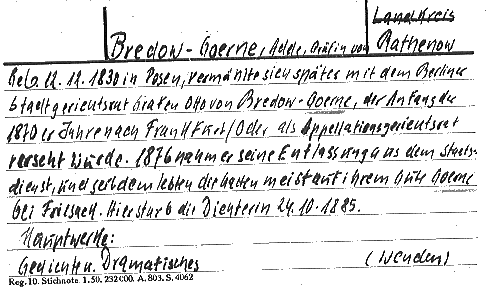 Landkreis
Bredow-Goerne, Adele, Gräfin von Rathenow
Geb. 12. 12. 1830 in Posen, vermählte sich später mit dem Berliner
Stadtgerichtsrat Grafen Otto von Bredow-Goerne, der Anfang der
1870er Jahre nach Frankfurt/Oder als Appellationsgerichtsrat
versetzt wurde. 1876 nahm er seine Entlassung aus dem Staats-
dienst, und seitdem lebten die beiden meist auf ihrem Gute Goerne
bei Friesack. Hier starb die Dichterin 24. 10. 1885.
Hauptwerke:
Gedichte u. Dramatisches
(Wenden)
Reg. 10. Stichnote. 1. 50. 232000. A. 803. S. 4062